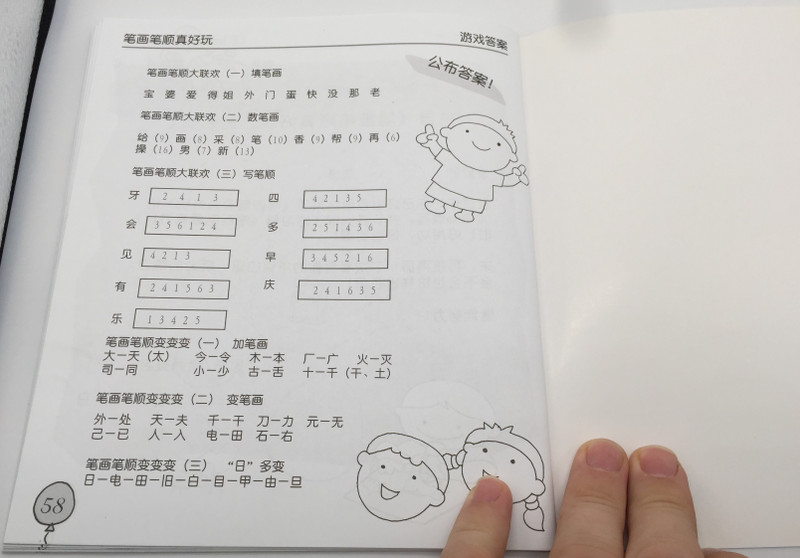 笔画笔顺真好玩
游戏答案
公布答案！
笔画笔顺大联欢（一）填笔画
宝 婆 爱 得 姐 外 门 蛋 快 没 那 老
笔画笔顺大联欢（二）数笔画
给（9）画（8）采（8）笔（10）香（9）帮（9）再（6）
操（16）男（7）新（13）
笔画笔顺大联欢（三）写笔顺
牙 2 4 1 3 四 4 2 1 3 5
会 3 5 6 1 2 4 多 2 5 1 4 3 6
见 4 2 1 3 早 3 4 5 2 1 6
有 2 4 1 5 6 3 庆 2 4 1 6 3 5
乐 1 3 4 2 5
笔画笔顺变变变（一） 加笔画
大—天（太） 今—令 木—本 厂—广 火—灭
司—同 小—少 古—舌 十—千（干、土）
笔画笔顺变变变（二） 变笔画
外—处 天—夫 千—干 刀—力 元—无
己—已 人—入 电—田 石—右
笔画笔顺变变变（三） “日”多变
日—电—田—旧—白—目—甲—由—旦
58